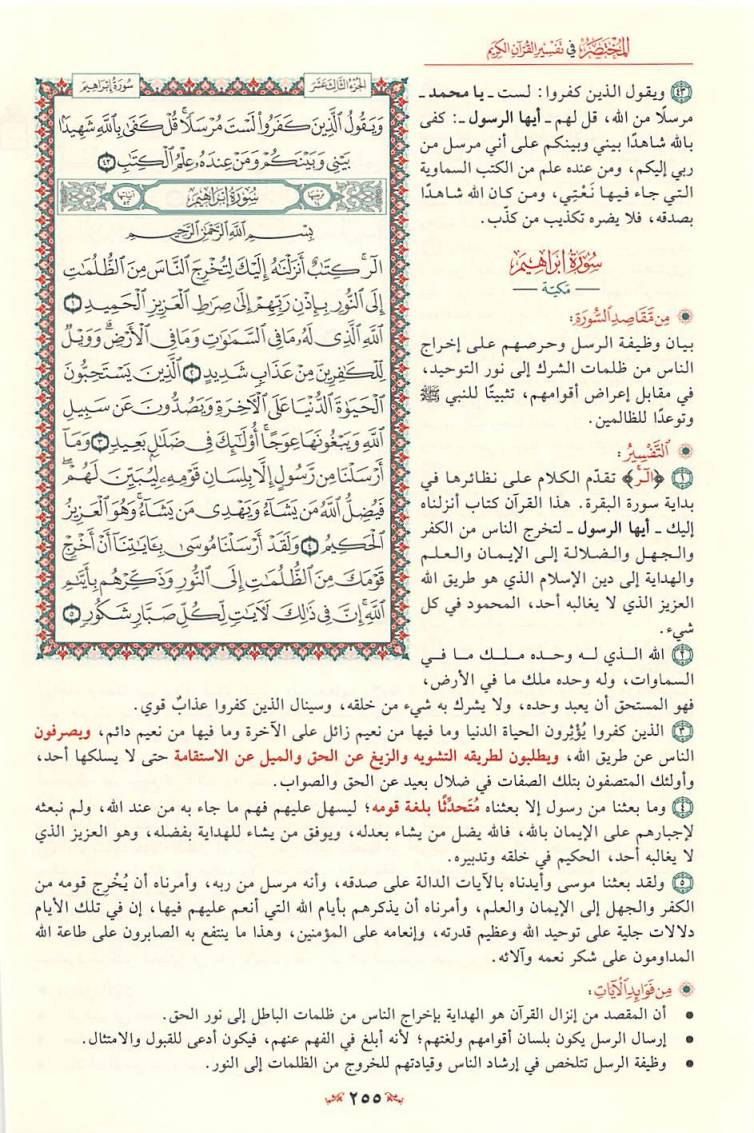 المختصر في تفسير القرآن الكريم
الجزء الثالث عشر
سورة إبراهيم
وَيَقُولُ ٱلَّذِينَ كَفَرُواْ لَسۡتَ مُرۡسَلٗاۚ قُلۡ كَفَىٰ بِٱللَّهِ شَهِيدَۢا
بَيۡنِي وَبَيۡنَكُمۡ وَمَنۡ عِندَهُۥ عِلۡمُ ٱلۡكِتَٰبِ ٤٣
سُورَةُ إِبْرَاهِيم
بِسۡمِ ٱللَّهِ ٱلرَّحۡمَٰنِ ٱلرَّحِيمِ
الٓرۚ كِتَٰبٌ أَنزَلۡنَٰهُ إِلَيۡكَ لِتُخۡرِجَ ٱلنَّاسَ مِنَ ٱلظُّلُمَٰتِ
إِلَى ٱلنُّورِ بِإِذۡنِ رَبِّهِمۡ إِلَىٰ صِرَٰطِ ٱلۡعَزِيزِ ٱلۡحَمِيدِ ١
ٱللَّهِ ٱلَّذِي لَهُۥ مَا فِي ٱلسَّمَٰوَٰتِ وَمَا فِي ٱلۡأَرۡضِۗ وَوَيۡلٞ
لِّلۡكَٰفِرِينَ مِنۡ عَذَابٖ شَدِيدٍ ٢ ٱلَّذِينَ يَسۡتَحِبُّونَ
ٱلۡحَيَوٰةَ ٱلدُّنۡيَا عَلَى ٱلۡأٓخِرَةِ وَيَصُدُّونَ عَن سَبِيلِ
ٱللَّهِ وَيَبۡغُونَهَا عِوَجًاۚ أُوْلَٰٓئِكَ فِي ضَلَٰلِۭ بَعِيدٖ ٣ وَمَآ
أَرۡسَلۡنَا مِن رَّسُولٍ إِلَّا بِلِسَانِ قَوۡمِهِۦ لِيُبَيِّنَ لَهُمۡۖ
فَيُضِلُّ ٱللَّهُ مَن يَشَآءُ وَيَهۡدِي مَن يَشَآءُۚ وَهُوَ ٱلۡعَزِيزُ
ٱلۡحَكِيمُ ٤ وَلَقَدۡ أَرۡسَلۡنَا مُوسَىٰ بِـَٔايَٰتِنَآ أَنۡ أَخۡرِجۡ
قَوۡمَكَ مِنَ ٱلظُّلُمَٰتِ إِلَى ٱلنُّورِ وَذَكِّرۡهُم بِأَيَّىٰمِ
ٱللَّهِۚ إِنَّ فِي ذَٰلِكَ لَأٓيَٰتٖ لِّكُلِّ صَبَّارٖ شَكُورٖ ٥
٤٣ ويقول الذين كفروا: لست ـ يا محمد ـ
مرسلًا من الله، قل لهم ـ أيها الرسول ـ: كفى
بالله شاهدًا بيني وبينكم على أني مرسل من
ربي إليكم، ومن عنده علم من الكتب السماوية
التي جاء فيها نَعْتِي، ومن كان الله شاهدًا
بصدقه، فلا يضره تكذيب من كذّب.
سُورَةُ إِبْرَاهِيم
ـ مَكيّة ـ
مِن مَّقَاصِدِ السُّورَةِ:
بيان وظيفة الرسل وحرصهم على إخراج
الناس من ظلمات الشرك إلى نور التوحيد،
في مقابل إعراض أقوامهم، تثبيتًا للنبي ﷺ
وتوعدًا للظالمين.
التَّفْسِيرُ:
١ ﴿الٓر﴾ تقدّم الكلام على نظائرها في
بداية سورة البقرة. هذا القرآن كتاب أنزلناه
إليك ـ أيها الرسول ـ لتخرج الناس من الكفر
والجهل والضلالة إلى الإيمان والعلم
والهداية إلى دين الإسلام الذي هو طريق الله
العزيز الذي لا يغالبه أحد، المحمود في كل
شيء.
٢ الله الذي له وحده ملك ما في
السماوات، وله وحده ملك ما في الأرض،
فهو المستحق أن يعبد وحده، ولا يشرك به شيء من خلقه، وسينال الذين كفروا عذابٌ قوي.
٣ الذين كفروا يُؤْثِرون الحياة الدنيا وما فيها من نعيم زائل على الآخرة وما فيها من نعيم دائم، ويصرفون
الناس عن طريق الله، ويطلبون لطريقه التشويه والزيغ عن الحق والميل عن الاستقامة حتى لا يسلكها أحد،
وأولئك المتصفون بتلك الصفات في ضلال بعيد عن الحق والصواب.
٤ وما بعثنا من رسول إلا بعثناه مُتَحدِّثًا بلغة قومه؛ ليسهل عليهم فهم ما جاء به من عند الله، ولم نبعثه
لإجبارهم على الإيمان بالله، فالله يضل من يشاء بعدله، ويوفق من يشاء للهداية بفضله، وهو العزيز الذي
لا يغالبه أحد، الحكيم في خلقه وتدبيره.
٥ ولقد بعثنا موسى وأيدناه بالآيات الدالة على صدقه، وأنه مرسل من ربه، وأمرناه أن يُخْرِج قومه من
الكفر والجهل إلى الإيمان والعلم، وأمرناه أن يذكرهم بأيام الله التي أنعم عليهم فيها، إن في تلك الأيام
دلالات جلية على توحيد الله وعظيم قدرته، وإنعامه على المؤمنين، وهذا ما ينتفع به الصابرون على طاعة الله
المداومون على شكر نعمه وآلائه.
مِن فَوَائِدِ الآيَاتِ:
• أن المقصد من إنزال القرآن هو الهداية بإخراج الناس من ظلمات الباطل إلى نور الحق.
• إرسال الرسل يكون بلسان أقوامهم ولغتهم؛ لأنه أبلغ في الفهم عنهم، فيكون أدعى للقبول والامتثال.
• وظيفة الرسل تتلخص في إرشاد الناس وقيادتهم للخروج من الظلمات إلى النور.
٢٥٥